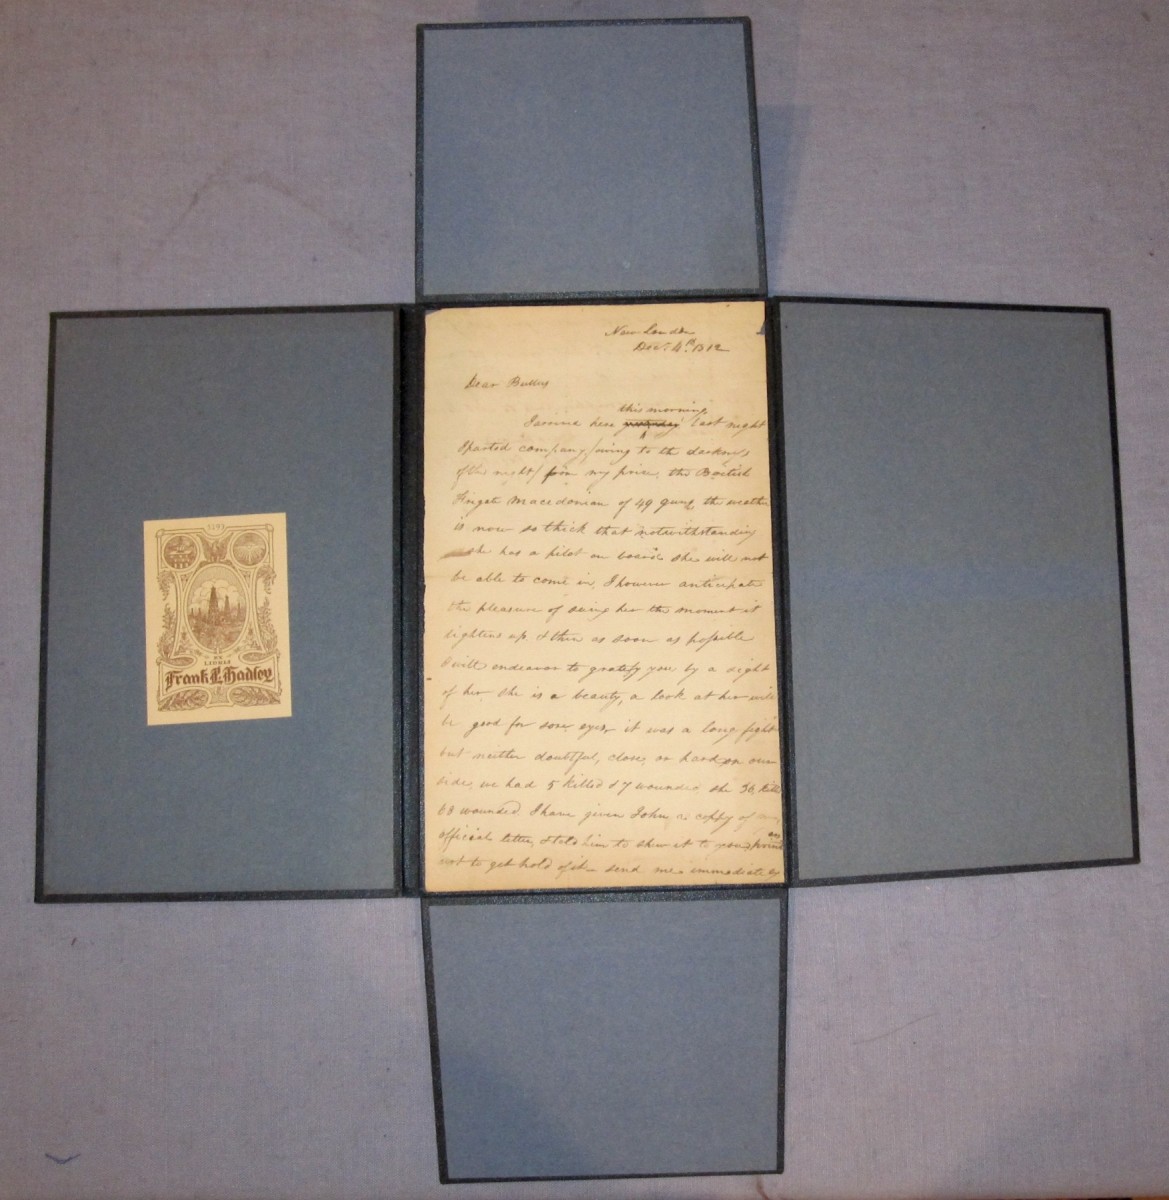 New London
Decr. 4th. 1812
Dear Bullus
this morning
I arrived here yesterday last night
I parted company (owing to the darkness
of the night) from my prize, the British
Frigate Macedonian of 49 guns the weather
is now so thick that notwithstanding
she has a pilot on board she will not
be able to come in, I however anticipate
the pleasure of seeing her the moment it
lightens up & then as soon as possible
I will endeavor to gratify you by a sight
of her she is a beauty, a look at her will
be good for sore eyes, it was a long fight
but neither doubtful, close, or hard on our
side, we had 5 killed & 7 wounded she 36 killd
68 wounded I have given John a coppy of my
official letter, & told him to shew it to you,
not to get hold of it send me immediately
EX
LIBRIS
Frank L. Hadley